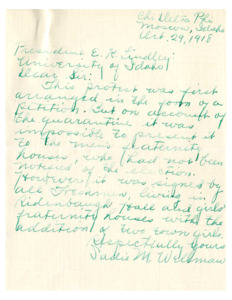 Chi Delta Phi
Moscow, Idaho
Oct. 29, 1918
President E. H. Lindley
University of Idaho
Dear Sir:
This protest was first
arranged in the form of a
petition. But on account of
the quarantine, it was
impossible to present it
to the men's fraternity
houses, who had not been
notified of the election.
However it was signed by
all Freshmen, living in
Ridenbaugh Hall and girls'
fraternity houses with the
addition of two town girls.
Respectfully yours
Sadie M.